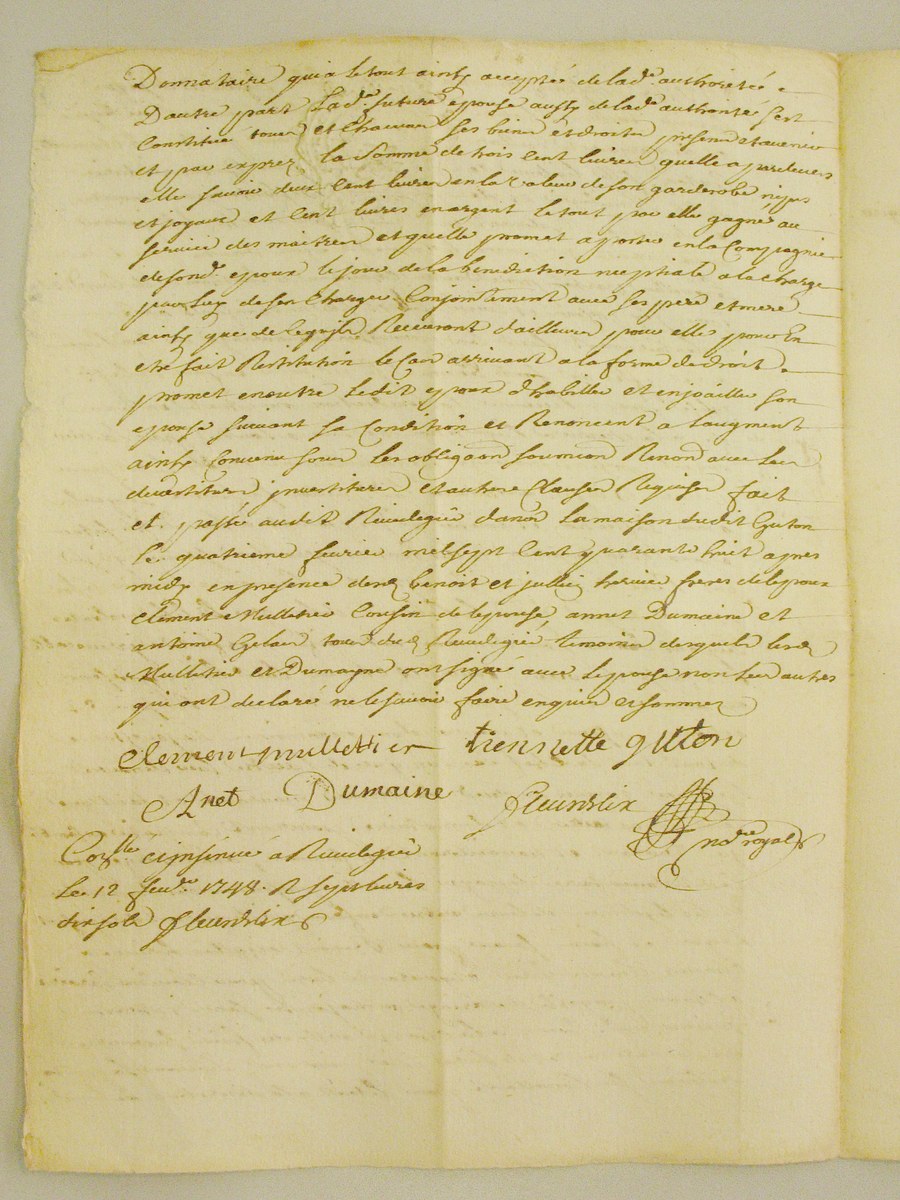 Donnataire qui a le tout ainsy accepté de lad.e authorité.
Dautre part Lad.e future epouse aussy de lad.e authorité sest
Constitué tous et Chacun ses biens et droits present et avenir
et par exprez la Somme de trois Cent livres quelle a pardevers
elle savoir deux Cent livres en la valeur de son garderobe nipes
et joyaux et Cent livres en argent le tout par elle gagné au
service des maitres et quelle promet aporter en la Compagnie
de son d. epoux le jour de la benediction nuptiale a la charge
par luy de sen Charger Conjointement avec ses pere et mere
ainsy que de ce quils Recevront dailleurs pour elle pour En
etre fait Restitution le Cas arrivant a la forme de droit.
promet en outre Ledit epoux dhabiller et enjoailler son
epouse suivant sa Condition et Renoncent a laugment
ainsy Convenu sous les obligaon soumion Renon avec les
devestitures investitures et autres Clauses Requises fait
et passé audit Rivilegié dans La maison dudit Guton
le quatrieme fevrier mil sept Cent quarante huit apres
midy en presence desd benoit et jullien frères de lepoux
Clement Mulletier Cousin de lepouse, annet Dumaine et
antoine Gelas tous dud Rivilegié temoins desquels lesd
Mulletier et Dumayne ont signé avec Lepouse non Les autres
qui ont declaré ne le savoir faire enquis et sommez
Clement mulletier tiennette guton
Anet Dumaine fleurdelix
nore royal
Conllé et insinué à Rivilegié
Le 12 fevr. 1748. R sept livres
dix sols fleurdelix